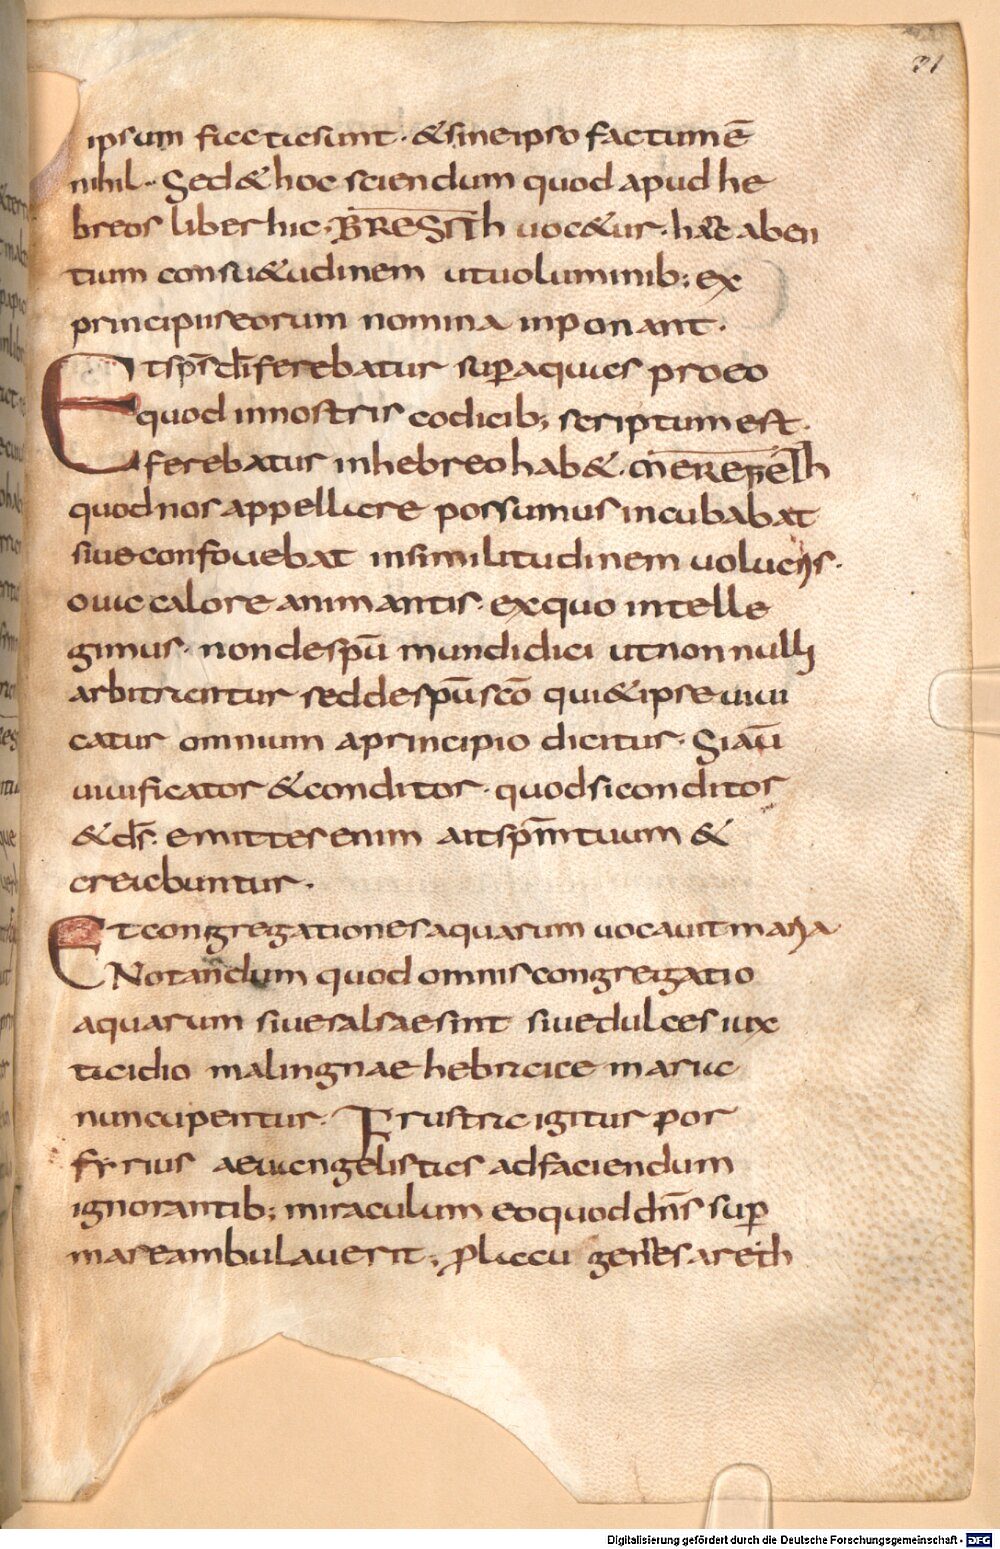 31
ipsum facta sunt · & sine ipso factum ē
nihil · Sed & hoc sciendum quod apud he
breos liber hic · BRESITh uoc&ur · hanc aben
tum consu&udinem ut uoluminib; ex
principiis eorum nomina inponant ·
Et sp̄s dī ferebatur sup̄ aquas pro eo
quod in nostris codicib; scriptum est ·
ferebatur in hebreo hab& · MEREFETh
quod nos appellare possumus incubabat
siue confouebat in similitudinem uolucris ·
oua calore animantis · ex quo intelle
gimus · non de sp̄u mundi dici ut non nulli
arbitrantur sed de sp̄u sc̄o qui & ipse uiui
catur omnium a principio dicitur · Si aū
uiuificator & conditor · quod si conditor
& d̄s · emittes enim ait sp̄m tuum &
creabuntur ·
Et congregationes aquarum uocauit maria
Notandum quod omnis congregatio
aquarum siue salsae sint siue dulces iux
ta idio ma lingnae hebraice maria
nuncupentur · Frustra igitur por
fyrius aeuangelistas ad faciendum
ignorantib; miraculum eo quod dn̄s sup̄
mare ambulauerit · p̄ lacu genesareth
Digitalisierung gefördert durch die Deutsche Forschungsgemeinschaft - DFG